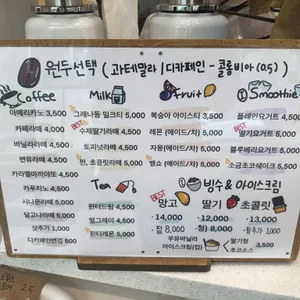 원두선택 (과테말라 | 디카페인 - 콜롬비아 (0.5))
Coffee
아메리카노 3,500
카페라떼 4,000
바닐라라떼 4,500
연유라떼 4,500
카라멜마끼아또 4,500
카푸치노 4,500
시나몬라떼 5,000
달고나라떼 5,000
샷추가 1,000
디카페인변경 500
Milk
그래나돌 밀크티 5,000
BEST 수제딸기라떼 4,500
토피넛라떼 4,500
민, 초코릿라떼 4,500
Tea
윈터드림 4,500
얼그레이 4,500
윈터레몬 5,000
Fruit
복숭아 아이스티 3,500
레몬 (에이드/차) 5,000
자몽 (에이드/차) 5,000
뱅쇼 (에이드/차) 5,500
Smoothie
플레인요거트 4,500
BEST 딸기요거트 5,000
블루베리요거트 5,000
소금초코쉐이크 5,500
빙수 & 아이스크림
BEST 망고 딸기 초콜릿
14,000 12,000 13,000
8,000 8,000 8,000
우유바닐라 아이스크림(컵) 딸기청 초코소스 3,500